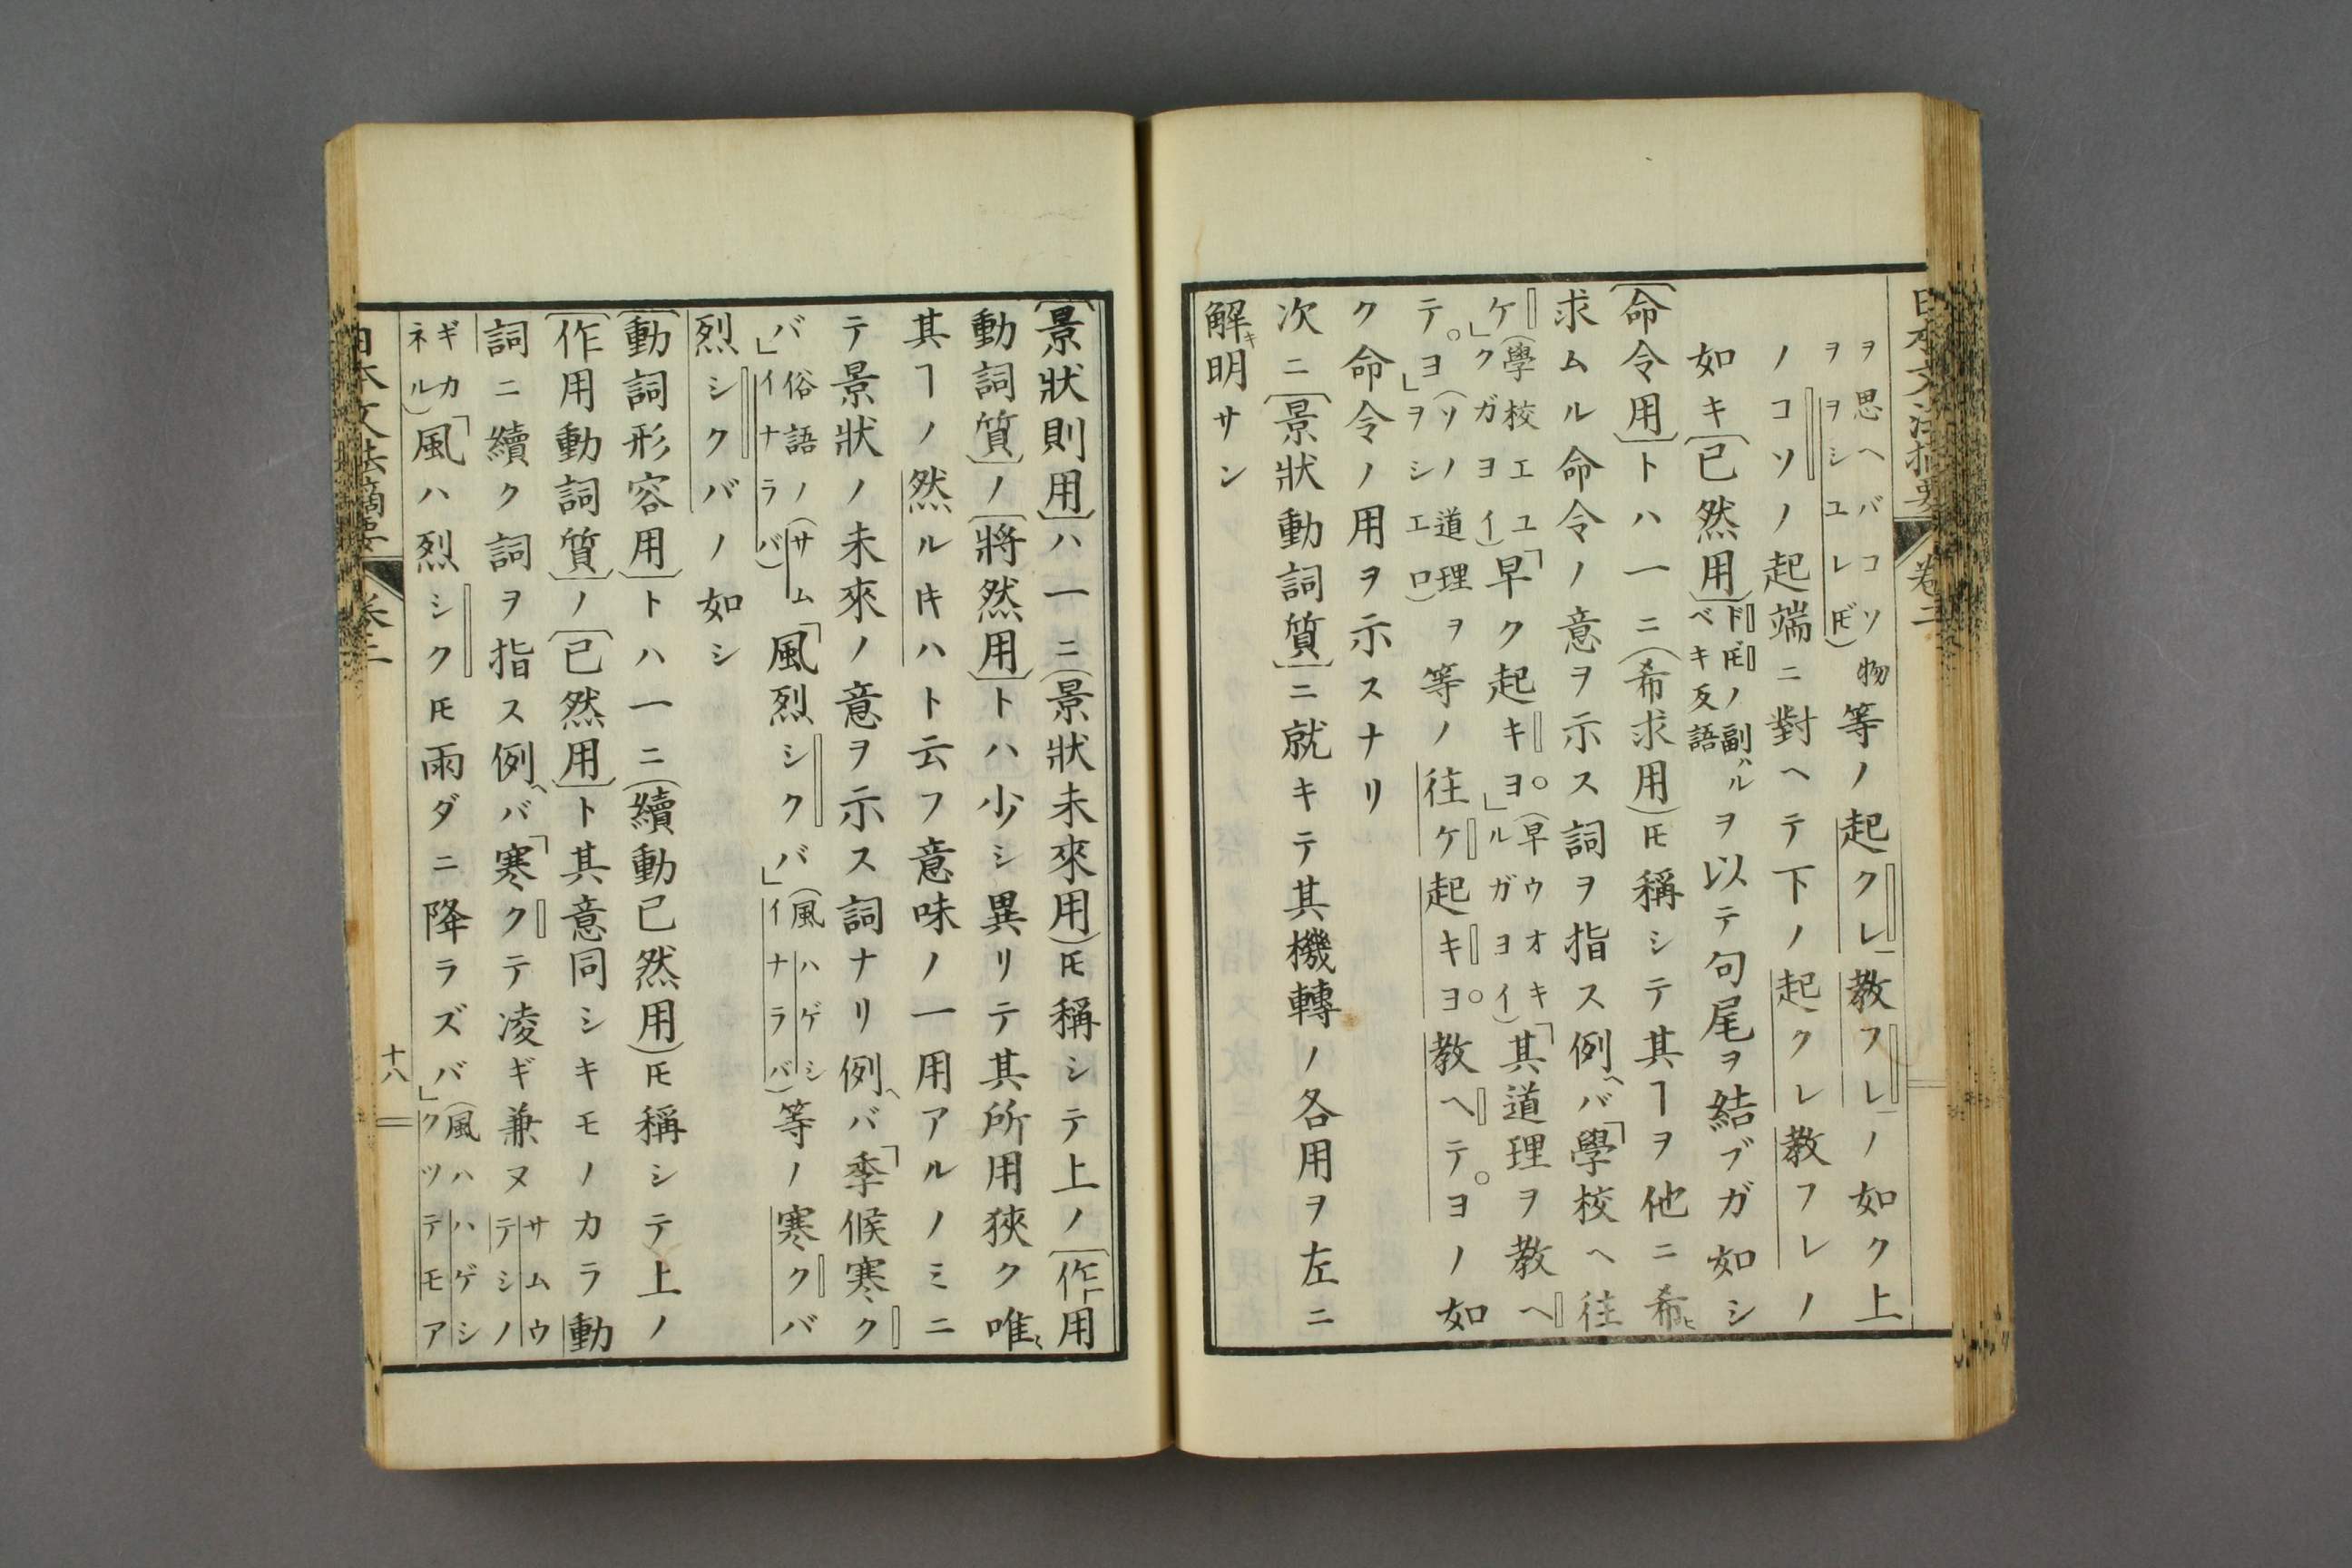 日本文法摘要
卷二
ヲ思ヘバコソ
ヲヲシユレ𪜈)
物等ノ起クレ教フレノ如ク上
ノコソノ起端ニ對ヘテ下ノ起クレ教フレノ
如キ〔已然用〕
ド𪜈ノ副ハル
ベキ反語
ヲ以テ句尾ヲ結ブガ如シ
〔命令用〕トハ一ニ(希求用)𪜈稱シテ其ヿヲ他ニ希ヒ
求ムル命令ノ意ヲ示ス詞ヲ指ス例ヘバ「學校ヘ往
ケ」
(學校エユ
クガヨイ)
「早ク起キヨ」
(早ウオキ
ルガヨイ)
「其道理ヲ教ヘ
テヨ」
(ソノ道理
ヲシエロ)
ヲ等ノ往ケ起キヨ教ヘテヨノ如
ク命令ノ用ヲ示スナリ
次ニ〔景狀動詞質〕ニ就キテ其機轉ノ各用ヲ左ニ
解キ明サン
〔景狀則用〕ハ一ニ(景狀未來用)𪜈稱シテ上ノ〔作用
動詞質〕ノ〔將然用〕トハ少シ異リテ其所用狹ク唯〻
其ヿノ然ルキハト云フ意味ノ一用アルノミニ
テ景狀ノ未來ノ意ヲ示ス詞ナリ例ヘバ「季候寒ク
バ」
俗語ノ(サム
イナラバ)
「風烈シクバ」
(風ハゲシ
イナラバ)
等ノ寒クバ
烈シクバノ如シ
〔動詞形容用〕トハ一ニ(續動已然用)𪜈稱シテ上ノ
〔作用動詞質〕ノ〔已然用〕ト其意同シキモノカラ動
詞ニ續ク詞ヲ指ス例ヘバ「寒クテ凌ギ兼ヌ
サムウ
テシノ
ギカ
ネル)
「風ハ烈シク𪜈雨ダニ降ラズバ」
(風ハハゲシ
クツテモア
日本文法摘要
卷二
十八